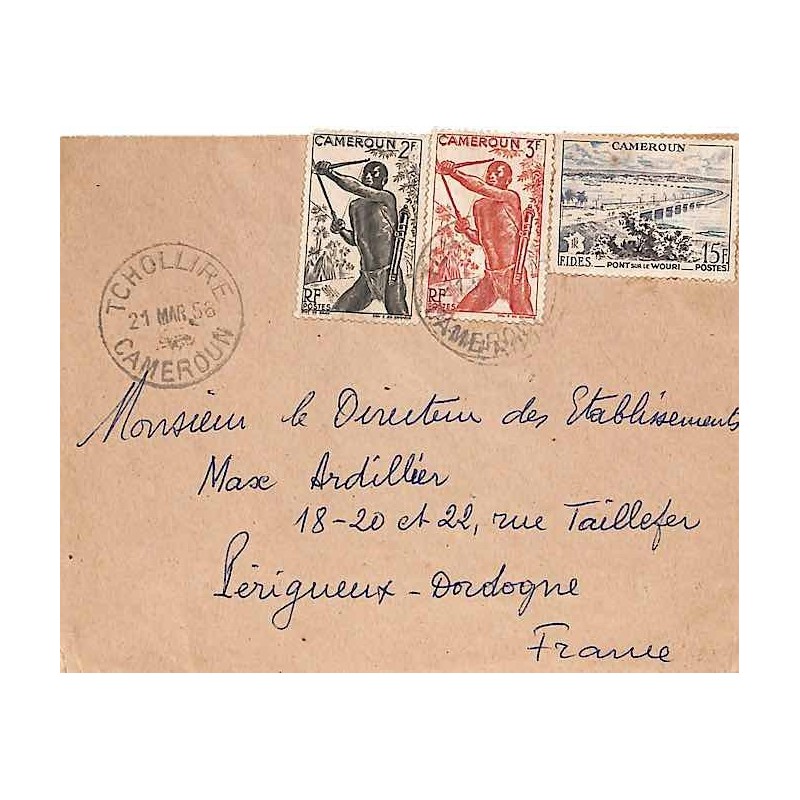 CAMEROUN 2F
RF
POSTES
CAMEROUN 3F
RF
POSTES
CAMEROUN
RF
FIDES
15F
PONT SUR LE WOURI
POSTES
TCHOLLIRE
21 MAR 56
CAMEROUN
CAMEROUN
Monsieur le Directeur des Etablissements
Max Ardillier
18-20 et 22, rue Taillefer
Périgueux - Dordogne
France